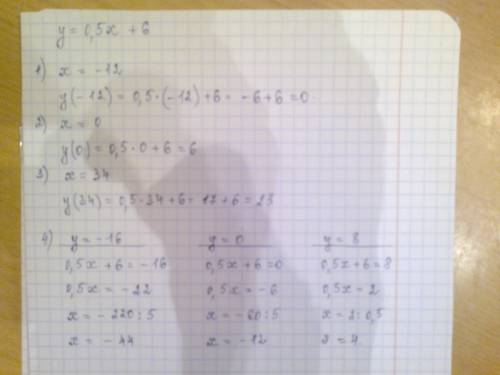 y = 0,5x + 6
1) x = -12
y(-12) = 0,5·(-12)+6 = -6+6 = 0
2) x = 0
y(0) = 0,5·0+6 = 6
3) x = 34
y(34) = 0,5·34+6 = 17+6 = 23
4) y = -16 y = 0 y = 8
0,5x+6 = -16 0,5x+6 = 0 0,5x+6 = 8
0,5x = -22 0,5x = -6 0,5x = 2
x = -220:5 x = -60:5 x = 2:0,5
x = -44 x = -12 x = 4